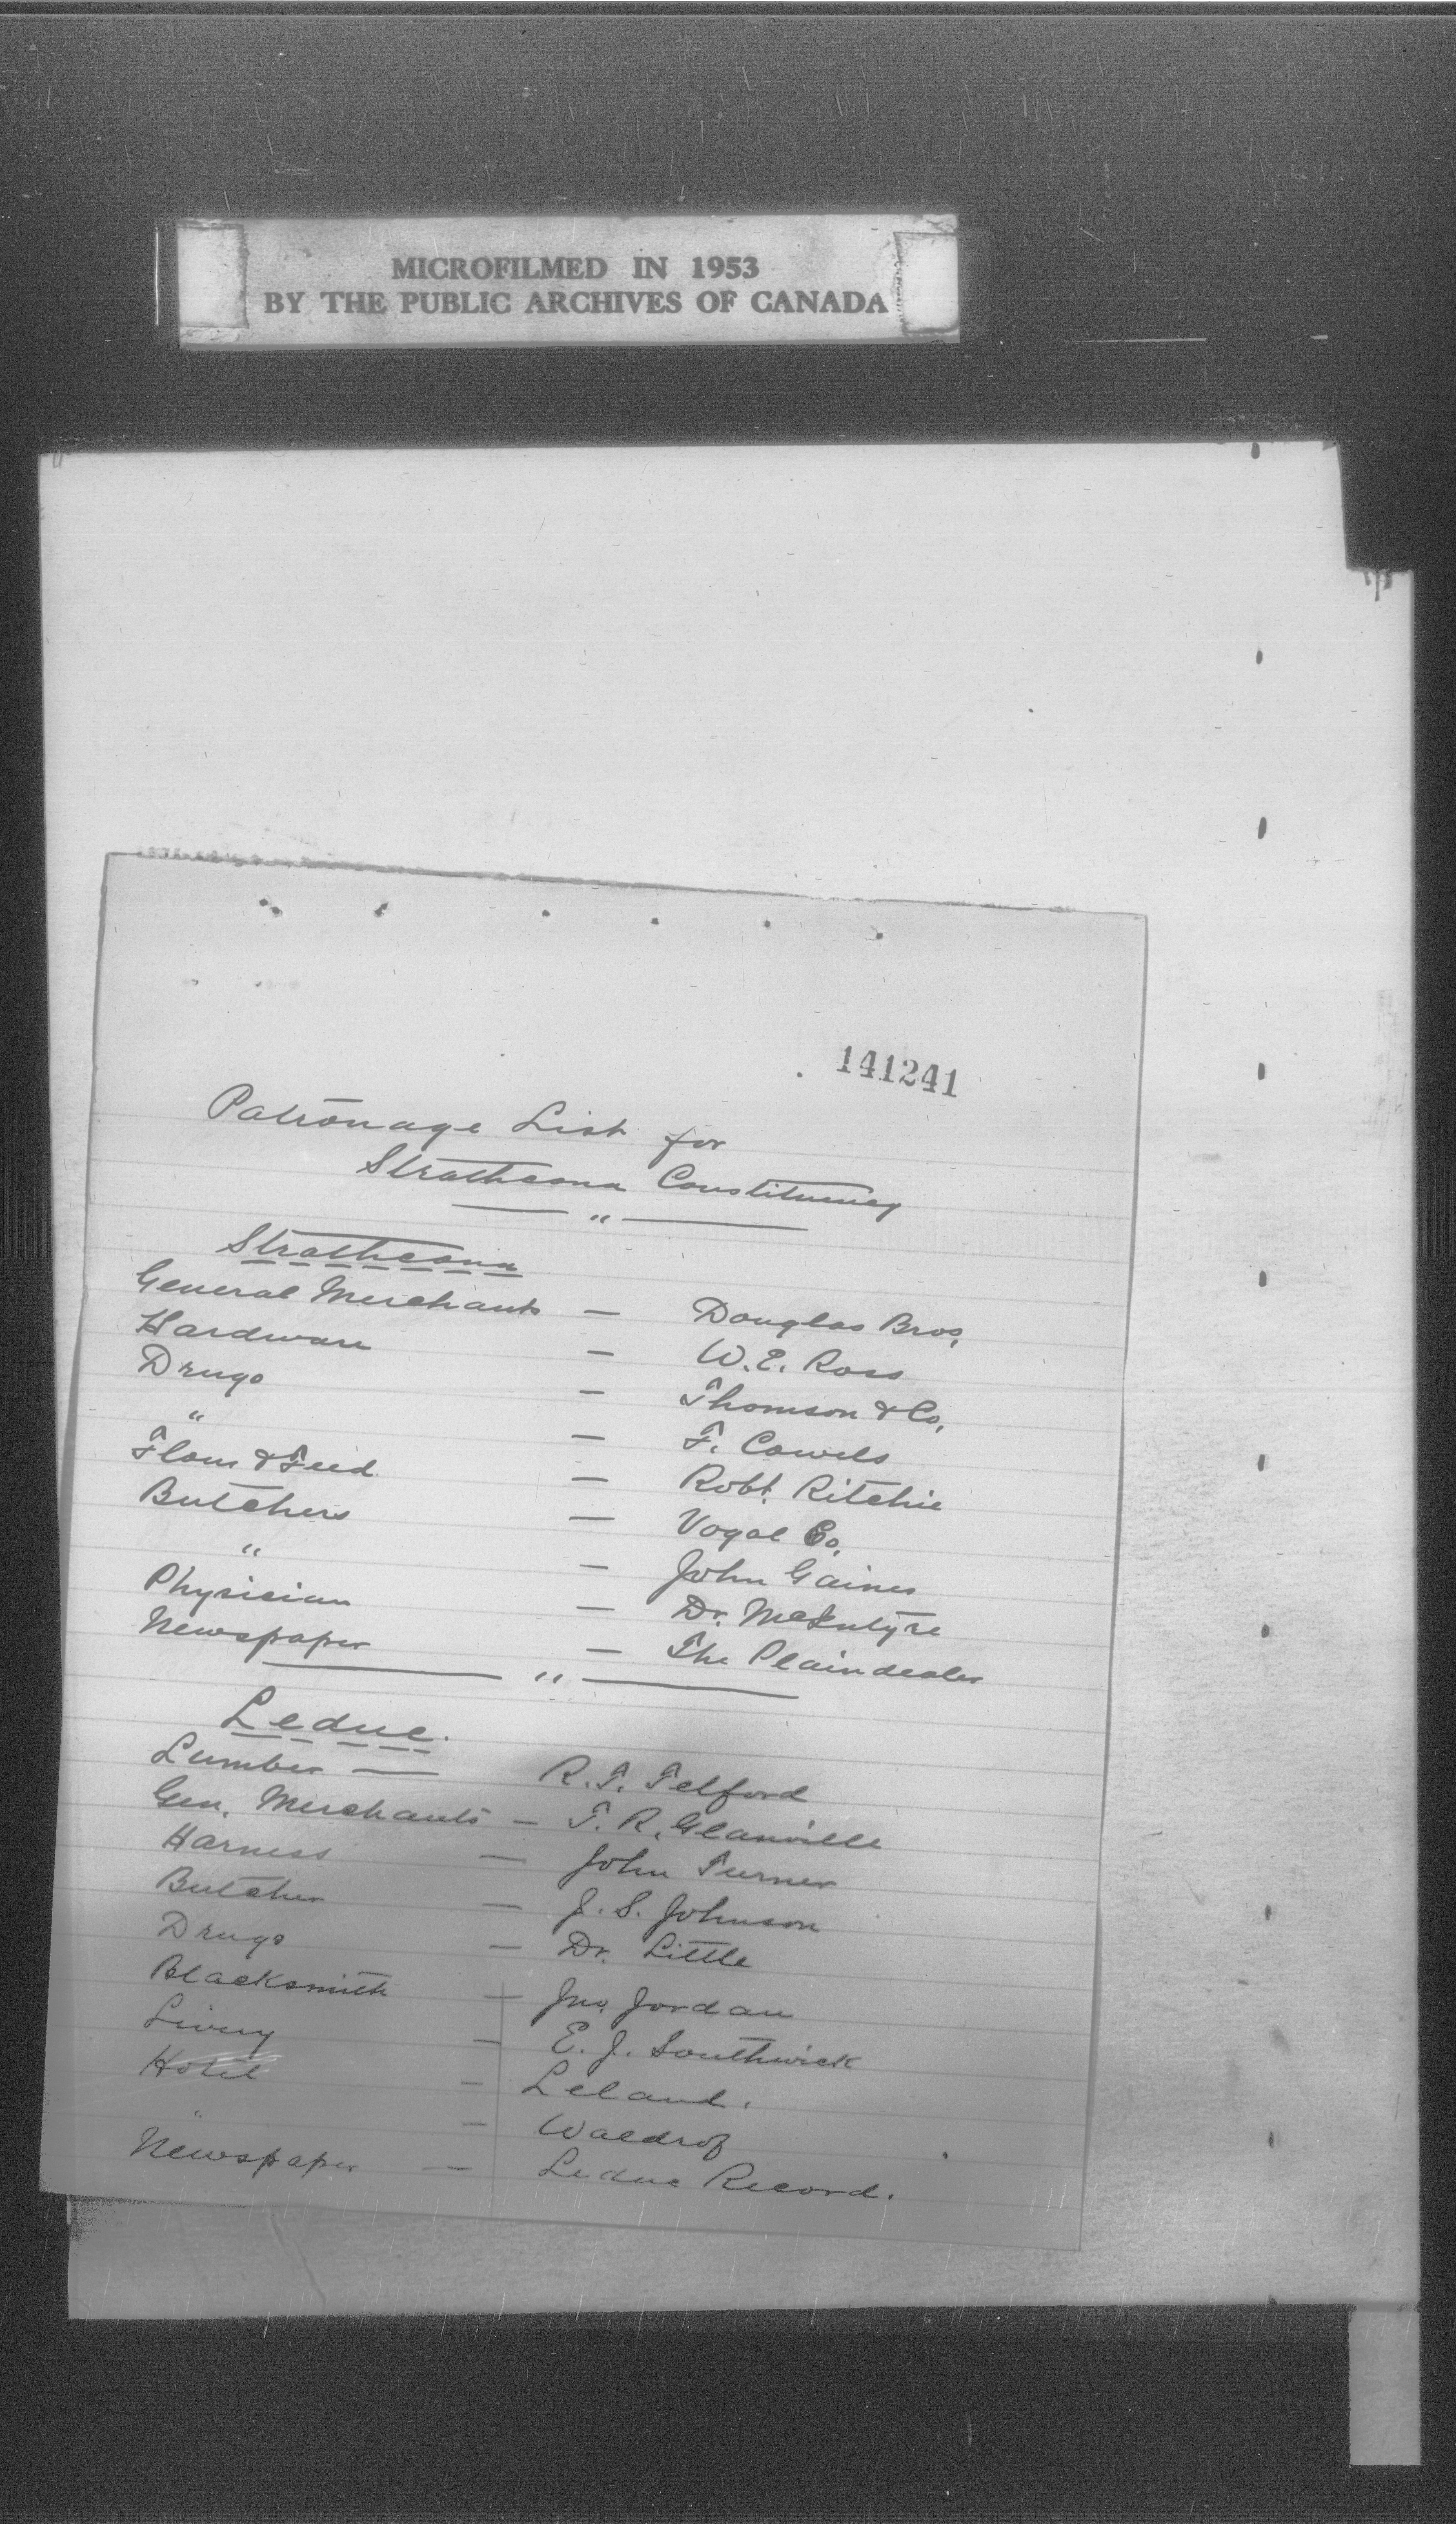 MICROFILMED IN 1953
BY THE PUBLIC ARCHIVES OF CANADA
141241
Patronage List for
Strathcona Constituency
"
Strathcona
General Merchants — Douglas Bros.
Hardware — W. E. Ross
Drugs — Thomson & Co.
" — F. Cowels
Flour & Feed — Robt. Ritchie
Butchers — Vogal Co.
" — John Gaines
Physician — Dr. McIntyre
Newspaper — The Plaindealer
"
Leduc.
Lumber — R. T. Telford
Gen. Merchants — T. R. Glanville
Harness — John Turner
Butcher — J. S. Johnson
Drugs — Dr. Little
Blacksmith — Jno. Jordan
Livery — E. J. Southwick
Hotel — Leland.
" — Waldrof
Newspaper — Leduc Record.